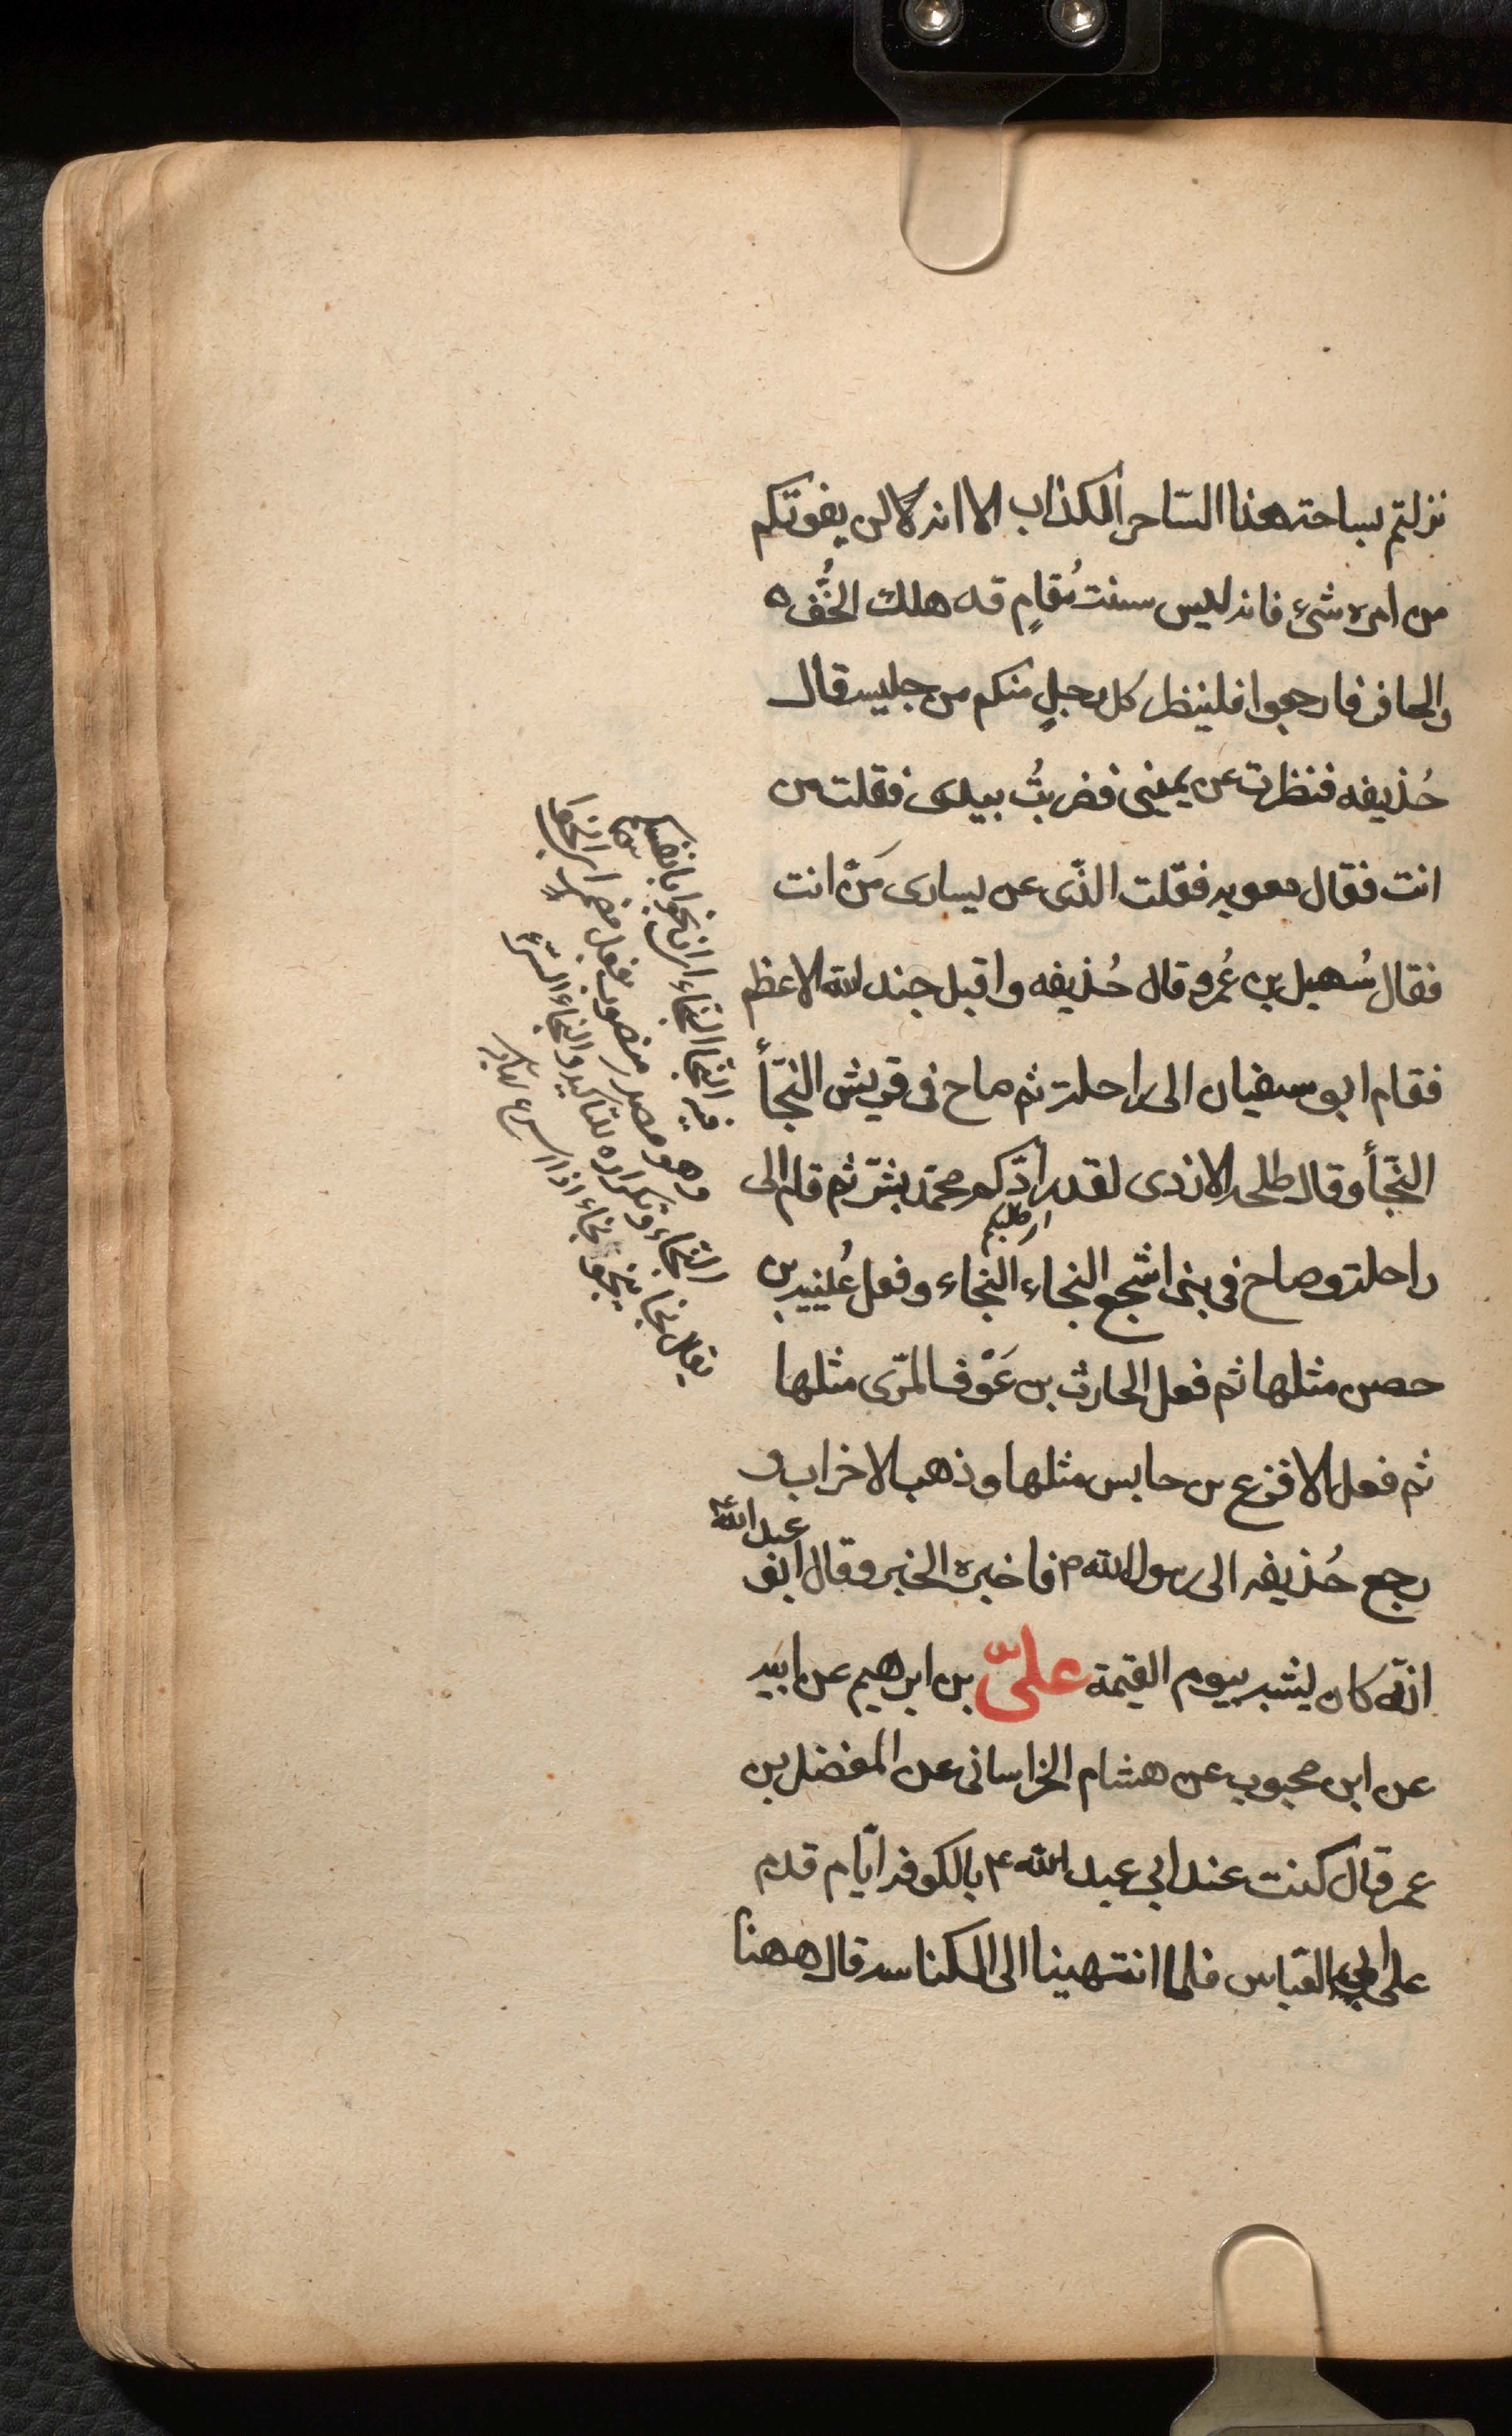 نزلتم بساحة هذا الساحر الكذاب الا انه لا لن يفوتكم
من امره شئ فانه ليس سنت مُقامٍ قد هلك الخُّف ه
والحافر فارجعوا فلينظر كل رجلٍ منكم من جليسه قال
حُذيفه فنظرت عن يمينى فضربتُ بيدى فقلت من
انت فقال معويه فقلت الذّى عن يسارى مَنْ انت
فقال سُهيل بن عُمرو قال حُذيفه واقبل جند الله الاعظم
فقام ابو سفيان الى راحلته ثم صاح فى قريش النّجأ
النّجأ وقال طلحه الازدى لقد رادّكم محمّد بشرّ ثم قام الى
راحلته وصاح فى بنى اشجع النجاء النجاء وفعل عُيينه بن
حصن مثلها ثم فعل الحارث بن عَوْف المرّى مثلها
ثم فعل الاقرع بن حابس مثلها وذهب الاحزاب و
رجع حُذيفه الى رسول الله ص فاخبره الخبر وقال ابو
عبد الله ع
انّه كان ليشبه بيوم القيمة علىّ بن ابرهيم عن ابيه
عن ابن محبوب عن هشام الخراسانى عن المفضل بن
عمر قال كنت عند ابى عبد الله ع بالكوفه ايّام قدم
على ابى العبّاس فلما انتهينا الى الكناسه قال ههنا
فيه النجا النجاء اى انجوا بانفسكم
وهو مصدر منصوب بفعل مضمر اى انجوا
النّجاء وتكراره للتاكيد والنجاء السّرعه
يقال نجا ينجو نجاء اذا اسرع